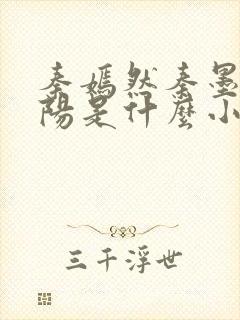 秦嫣然秦墨
陽是什麼小
三千浮世